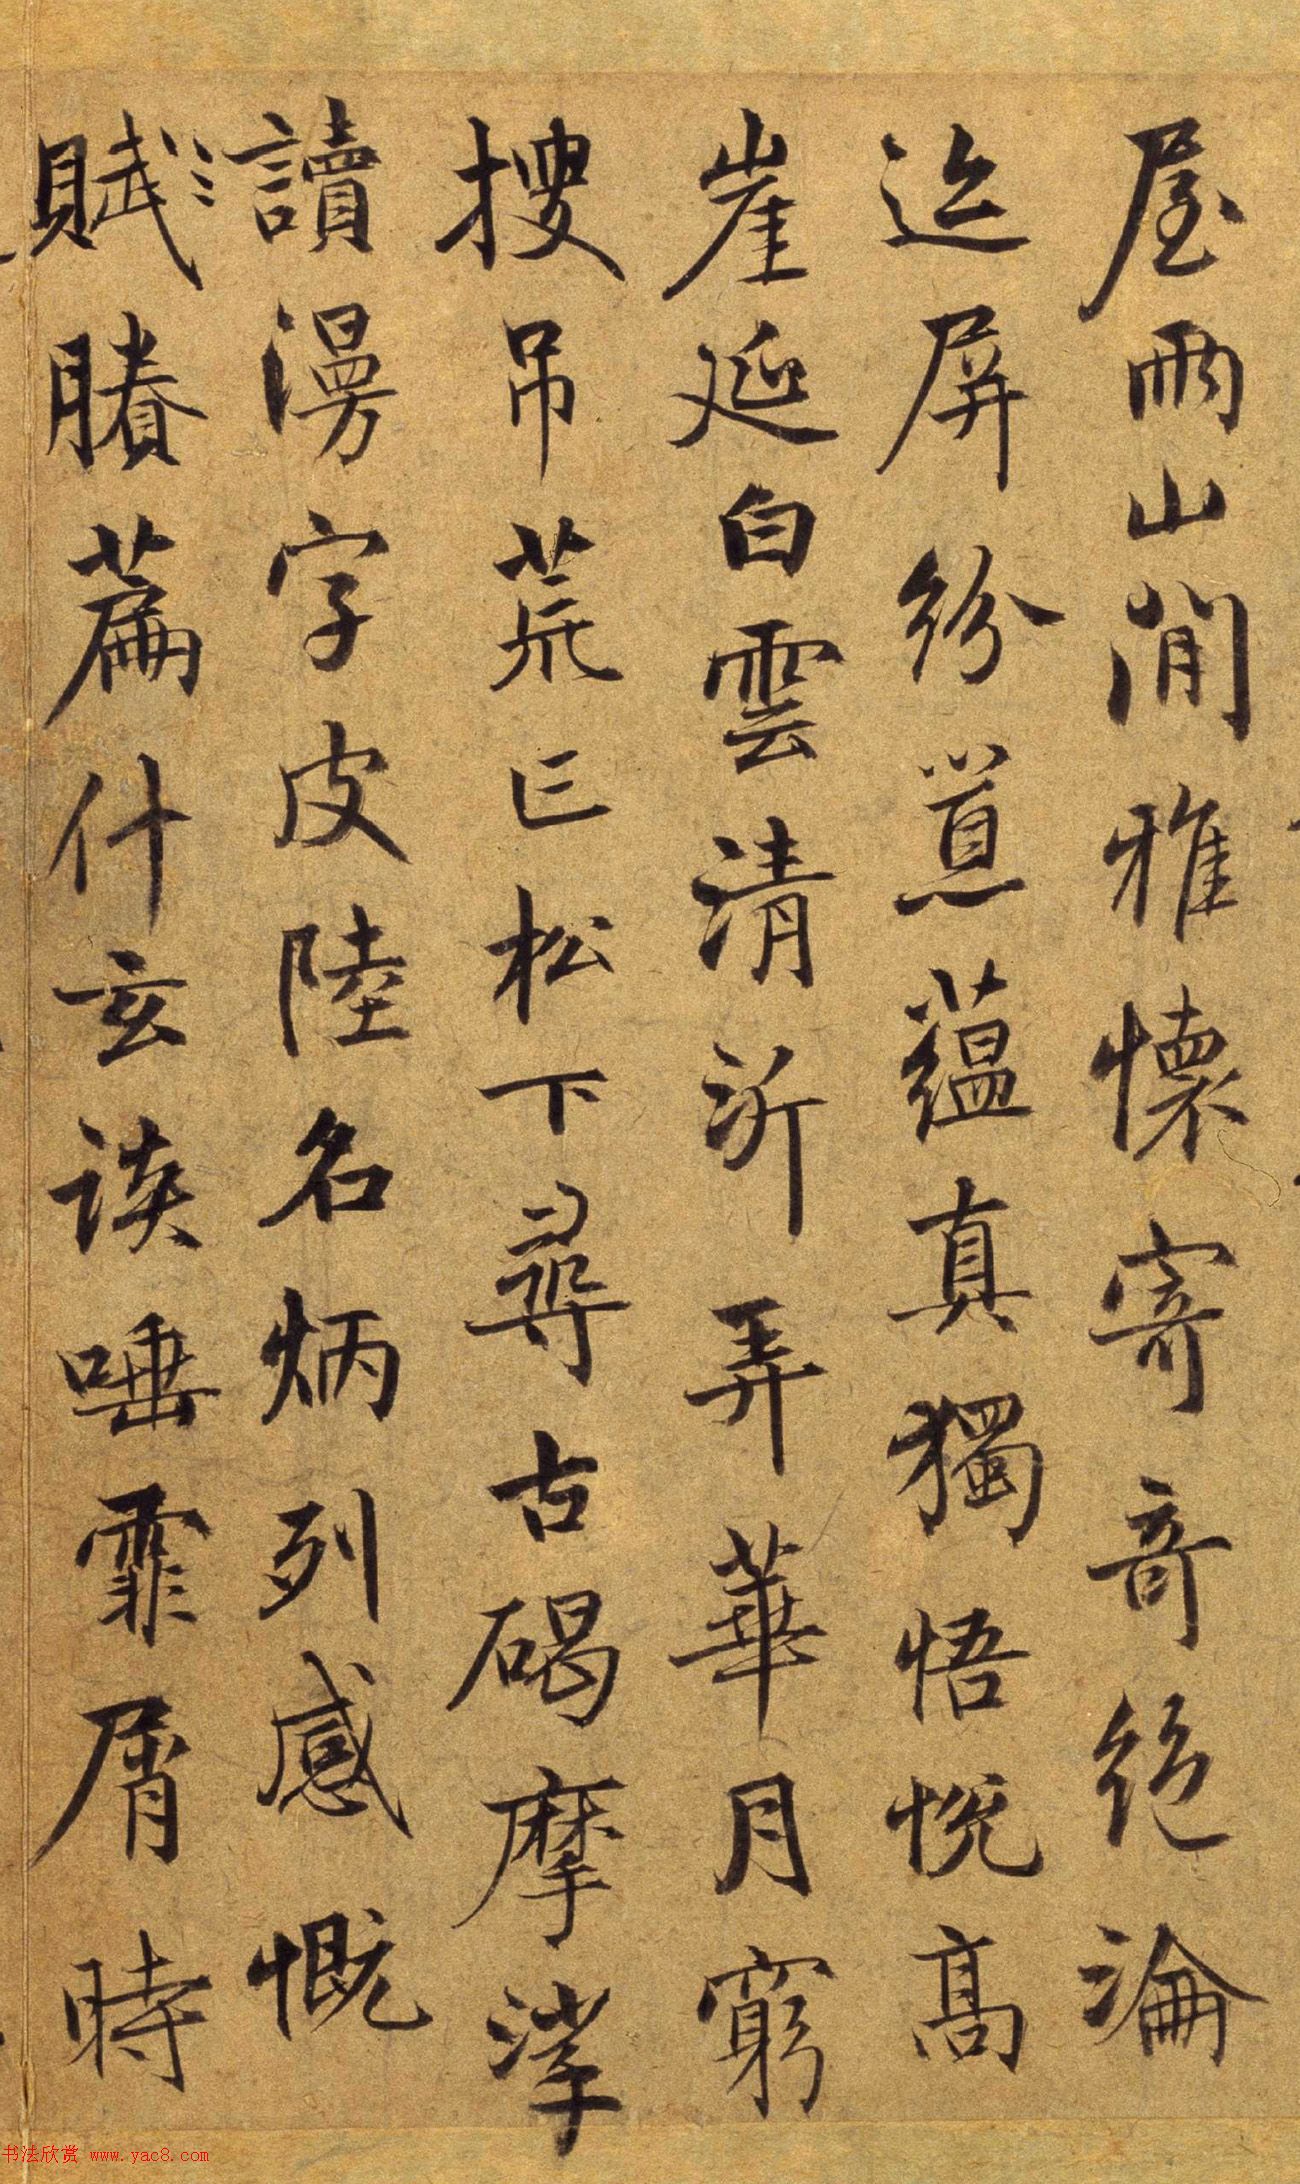 屋兩山間雅懷寄奇絕淪
迹屏紛囂蘊真獨悟悅高
崖延白雲清沂弄華月窮
搜吊荒亡松下尋古碣摩挲
讀漫字皮陸名炳列感慨
賦賸篇什玄談唾霏屑時
书法欣赏 www.yac8.com